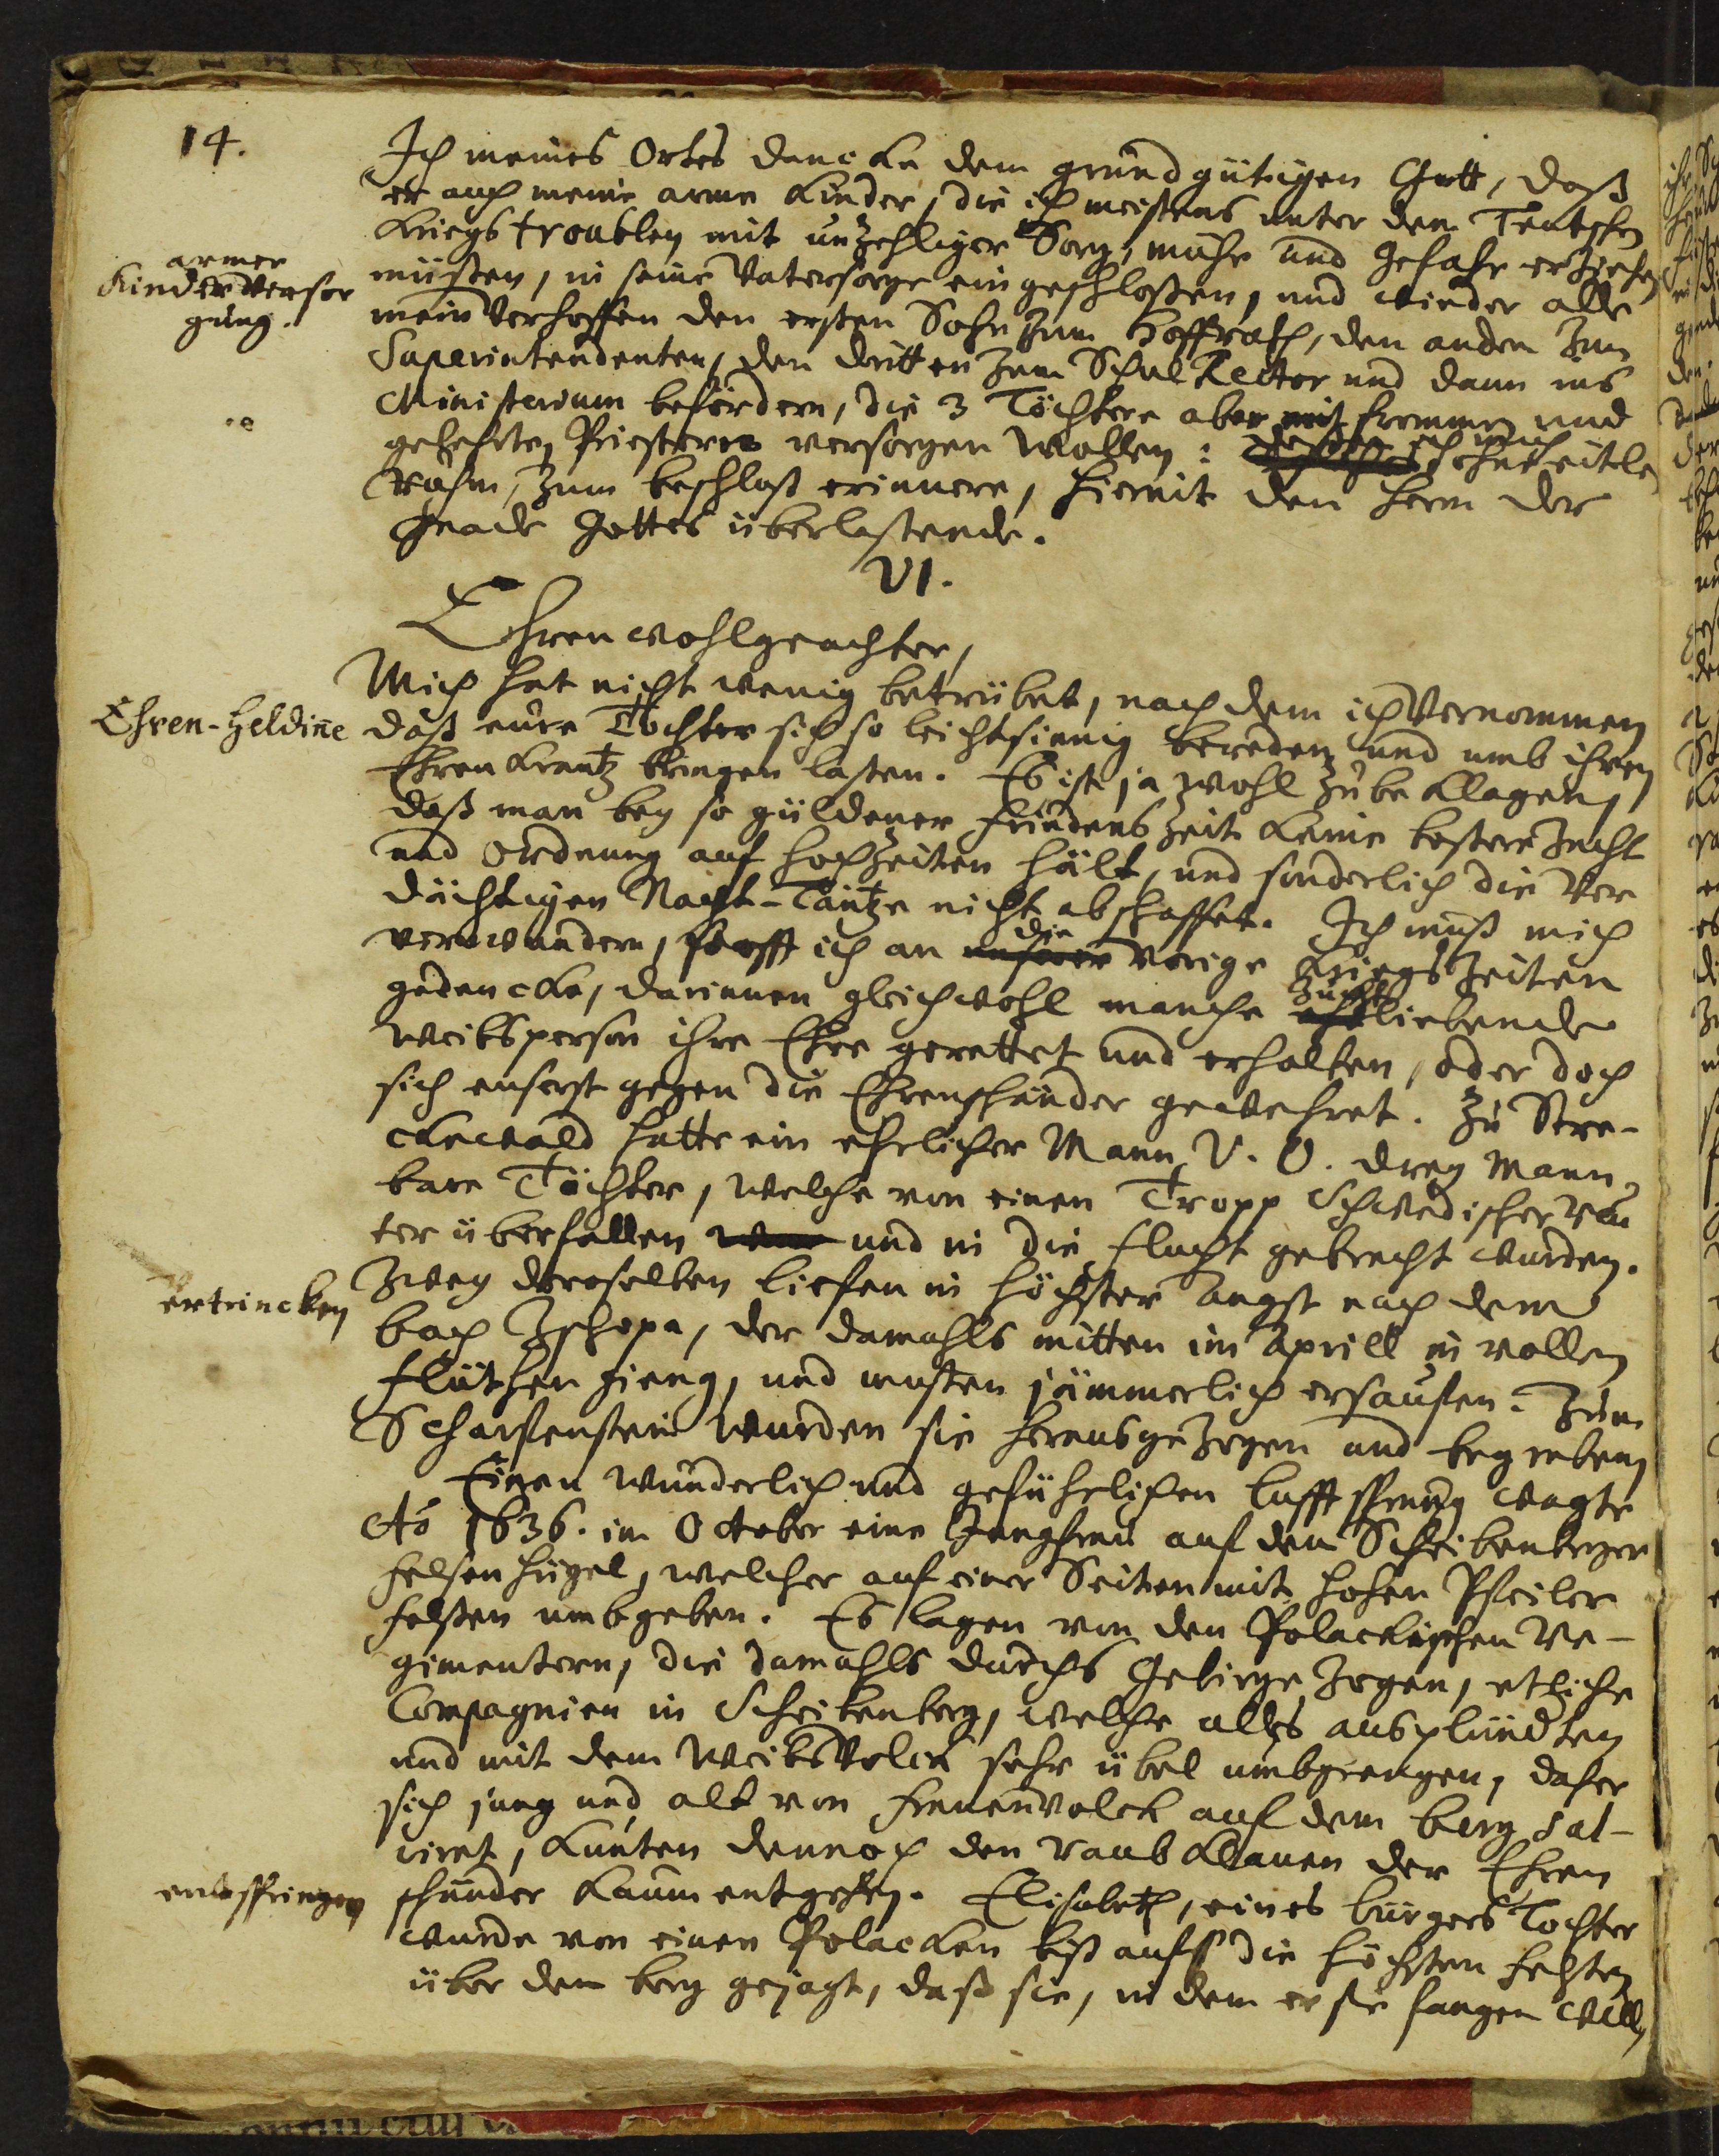 14.
Ich meines Ortes dancke dem grundgütigen Gott, daß
er auch meine arme Kinder, die ich meistens unter den Teutschen
Kriegstroublen mit unzehliger Sorg, mühe und gefahr erziehen
armer
Kinder versor
gung.
müßen, in seine Vatersorge eingeschloßen, und wieder alle
mein Verhoffen den ersten Sohn zum Hoffrath, den andern zum
Superintendenten, den dritten zum Schul Rector und dann ins
Ministerium befördern, die 3 Töchtere aber mit frommen und
gelehrten Priestern versorgen wollen: deßen ich mich ohne eitlen
Ruhm, zum beschluß erinnere, hiermit den Herrn der
Gnade Gottes überlaßende.
VI.
Ehrenwohlgeachter,
Mich hat nicht wenig betrübet, nach dem ich Vernommen
Ehren-Heldine
daß eure Tochter sich so leichtsinnig bereden und umb ihren
Ehren Krantz bringen laßen. Es ist ja wohl zu beklagen,
daß man bey so güldener friedens Zeit keine beßere Zucht
und Ordnung auf hochzeiten hält, und sonderlich die Ver
dächtigen Nacht-Täntze nicht abschaffet. Ich muß mich
verwundern, so offt ich an die vorige Kriegs Zeiten
gedencke, darinnen gleichwohl manche Zucht liebende
Weibsperson ihre Ehre gerettet und erhalten, oder doch
sich euserst gegen die Ehrenschänder gewehret. Zu Stre-
ckewald hatte ein ehrlicher Mann V. O. drey Mann-
bare Töchter, welche von einen Tropp Schwedischer Reu
ter überfallen und in die flucht gebracht wurden.
ertrincken
Zwey derselben lieffen in höchster angst nach dem
bach Zschopa, der damahls mitten im Aprill in vollen
fluthen gieng, und musten jämmerlich ersauffen. Zum
Scharffenstein wurden sie herausgezogen und begraben
Einen wunderlich und gefährlichen Lufftsprung wagte
Ao 1636. im October eine Jungfrau auf den Scheibenberger
felsen hügel, welcher auf einer Seiten mit hohen Pfeiler
felßen umbgeben. Es lagen von den Polackischen Re-
gimentern, die damahls durchs Gebirge zogen, etliche
Compagnien in Scheibenberg, welche alles ausplündten
und mit dem Weibsvolck sehr übel umbgiengen, daher
sich jung und alt von frauenvolck auf dem berg sal-
viret, kunten dennoch den Raubklauen der Ehren
entspringen
schänder kaum entgehen. Elisabeth, eines bürgers Tochter
wurde von einen Polacken biß auff die höchsten felßen
über dem berg gejagt, daß sie, in dem er sie fangen will,